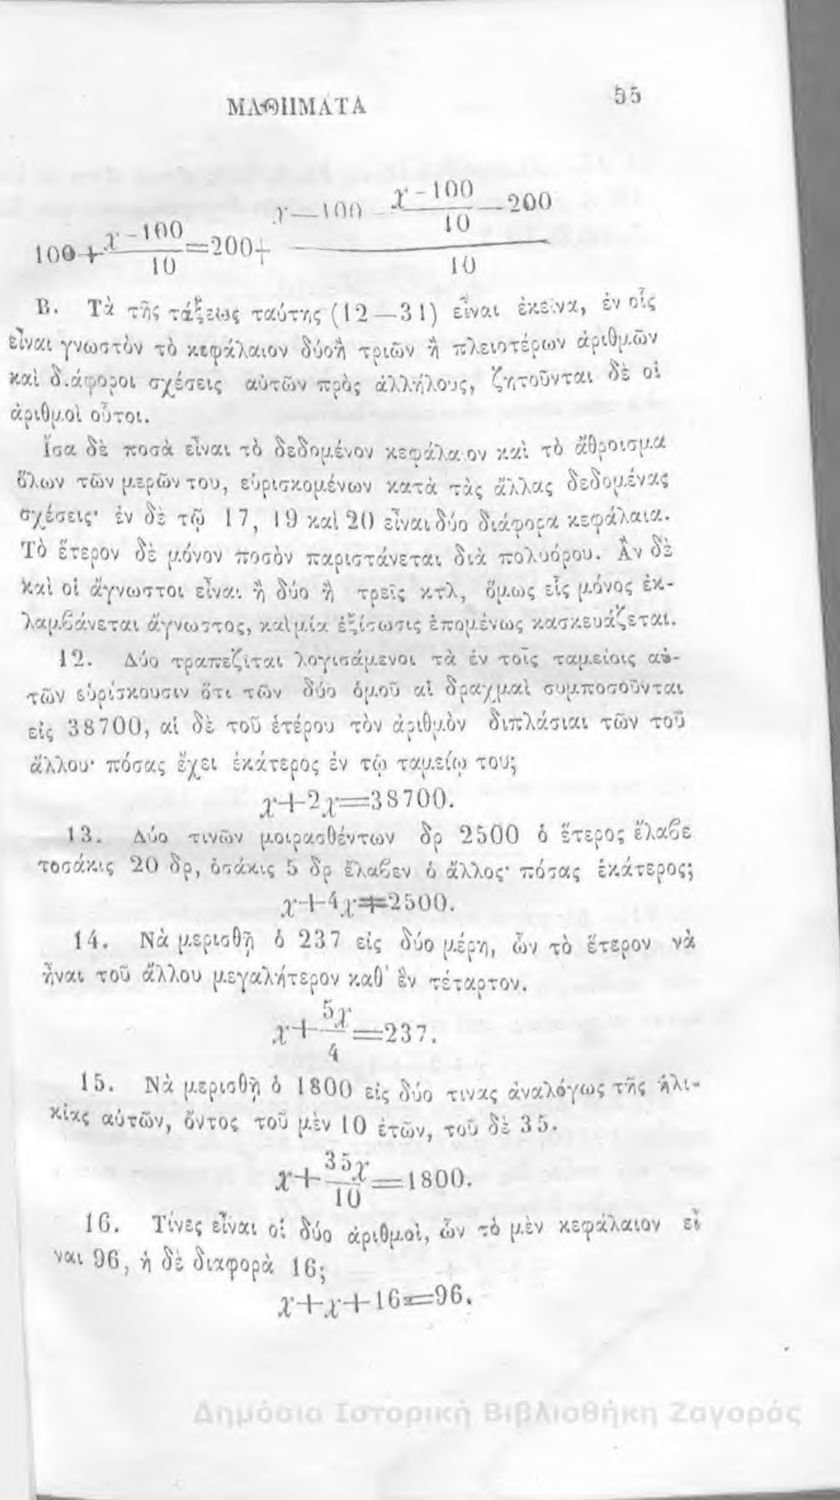 ΜΑΘΗΜΑΤΑ 55
100+(x-100)/10=200+(x—100-(x-100)/10—200)/10
Β. Τὰ τῆς τάξεως ταύτης (12—31) εἶναι ἐκεῖνα, ἐν οἷς
εἶναι γνωστὸν τὸ κεφάλαιον δύοἢ τριῶν ἢ πλειοτέρων ἀριθμῶν
καὶ διάφοροι σχέσεις αὐτῶν πρὸς ἀλλήλους, ζητοῦνται δὲ οἱ
ἀριθμοὶ οὗτοι.
Ἴσα δὲ ποσὰ εἶναι τὸ δεδομένον κεφάλαιον καὶ τὸ ἄθροισμα
ὅλων τῶν μερῶν του, εὑρισκομένων κατὰ τὰς ἄλλας δεδομένας
σχέσεις· ἐν δὲ τῷ 17, 19 καὶ 20 εἶναι δύο διάφορα κεφάλαια.
Τὸ ἕτερον δὲ μόνον ποσὸν παριστάνεται διὰ πολυόρου. Ἂν δὲ
καὶ οἱ ἄγνωστοι εἶναι ἢ δύο ἢ τρεῖς κτλ, ὅμως εἷς μόνος ἐκ-
λαμβάνεται ἄγνωστος, καὶ μία ἐξίσωσις ἑπομένως κασκευάζεται.
12. Δύο τραπεζῖται λογισάμενοι τὰ ἐν τοῖς ταμείοις αὐ-
τῶν εὑρίσκουσιν ὅτι τῶν δύο ὁμοῦ αἱ δραχμαὶ συμποσοῦνται
εἰς 38700, αἱ δὲ τοῦ ἑτέρου τὸν ἀριθμὸν διπλάσιαι τῶν τοῦ
ἄλλου· πόσας ἔχει ἑκάτερος ἐν τῷ ταμείῳ του;
x+2x=38700.
13. Δύο τινῶν μοιρασθέντων δρ 2500 ὁ ἕτερος ἔλαβε
τοσάκις 20 δρ, ὁσάκις 5 δρ ἔλαβεν ὁ ἄλλος· πόσας ἑκάτερος;
x+4x=2500.
14. Νὰ μερισθῇ ὁ 237 εἰς δύο μέρη, ὧν τὸ ἕτερον νὰ
ἦναι τοῦ ἄλλου μεγαλήτερον καθ' ἓν τέταρτον.
x+5x/4=237.
15. Νὰ μερισθῇ ὁ 1800 εἰς δύο τινας ἀναλόγως τῆς ἡλι-
κίας αὐτῶν, ὄντος τοῦ μὲν 10 ἐτῶν, τοῦ δὲ 35.
x+35x/10=1800.
16. Τίνες εἶναι οἱ δύο ἀριθμοὶ, ὧν τὸ μὲν κεφάλαιον εἶ
ναι 96, ἡ δὲ διαφορὰ 16;
x+x+16=96.
Δημόσια Ιστορική Βιβλιοθήκη Ζαγοράς